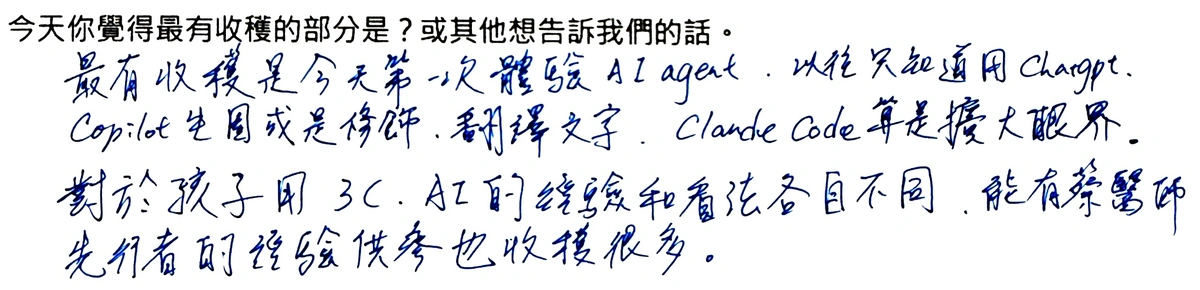 今天你覺得最有收穫的部分是？或其他想告訴我們的話。
最有收穫是今天第一次體驗 AI agent．以往只知道用 Chargpt.
Copilot 生圖或是修飾．翻譯文字．Claude Code 算是擴大眼界。
對於孩子用 3C．AI 的經驗和看法各自不同．能有蔡醫師
先行者的經驗供參也收穫很多。